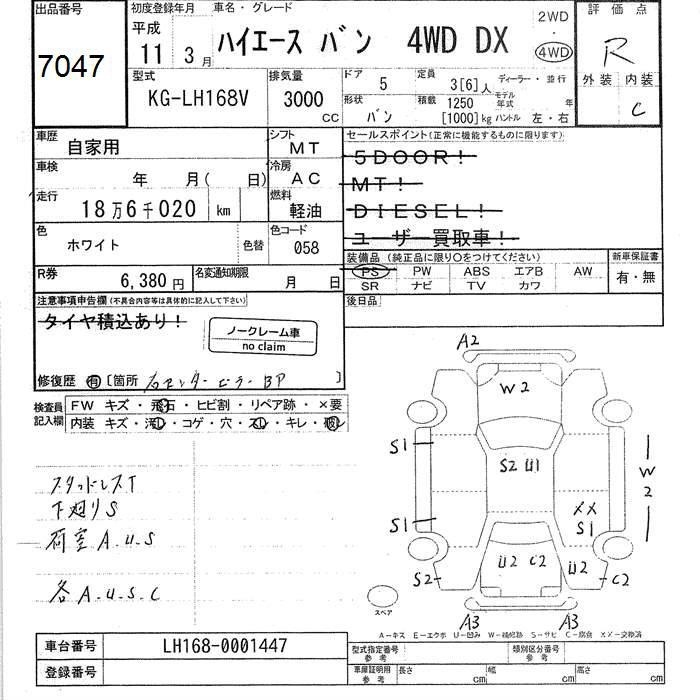 出品番号 初度登録年月 車名・グレード 評価点
7047 平成 11 3月 ハイエース バン 4WD DX 2WD 4WD R
外装 内装 C
型式 KG-LH168V 排気量 3000 CC ドア 5 定員 3[6]人 ディーラー・並行
形状 バン 積載 1250 [1000]kg モデル年式 年 ハンドル 左・右
車歴 自家用 シフト MT セールスポイント(正常に機能するものに限ります)
5DOOR!
車検 年 月( 日) 冷房 AC MT!
走行 18万6千020 km 燃料 軽油 DIESEL!
ユーザー買取車!
色 ホワイト 色替 色コード 058 装備品 (純正品に限り○をつけてください) 新車保証書
PS PW ABS エアB AW 有・無
SR ナビ TV カワ
R券 6,380円 名変通知期限 月 日
後日品
注意事項申告欄(不具合内容等は具体的に記入して下さい)
タイヤ積込あり!
ノークレーム車
no claim
修復歴 有 [箇所 右センターピラー BP ]
検査員記入欄 FW キズ・飛石・ヒビ割・リペア跡・×要
内装 キズ・汚レ・コゲ・穴・スレ・キレ・破レ
スタッドレスT
下廻りS
荷室 A.U.S
各 A.U.S.C
A2
W2
S1
S2 U1
W2
XX
S1
S1
U2 C2 U2
S2 C2
A3 A3
スペア
A-キズ E-エクボ U-凹み W-補修跡 S-サビ C-腐食 XX-交換済
車台番号 LH168-0001447 型式指定番号 参考 類別区分番号 参考
登録番号 車庫証明用 参考 長さ cm 幅 cm 高さ cm